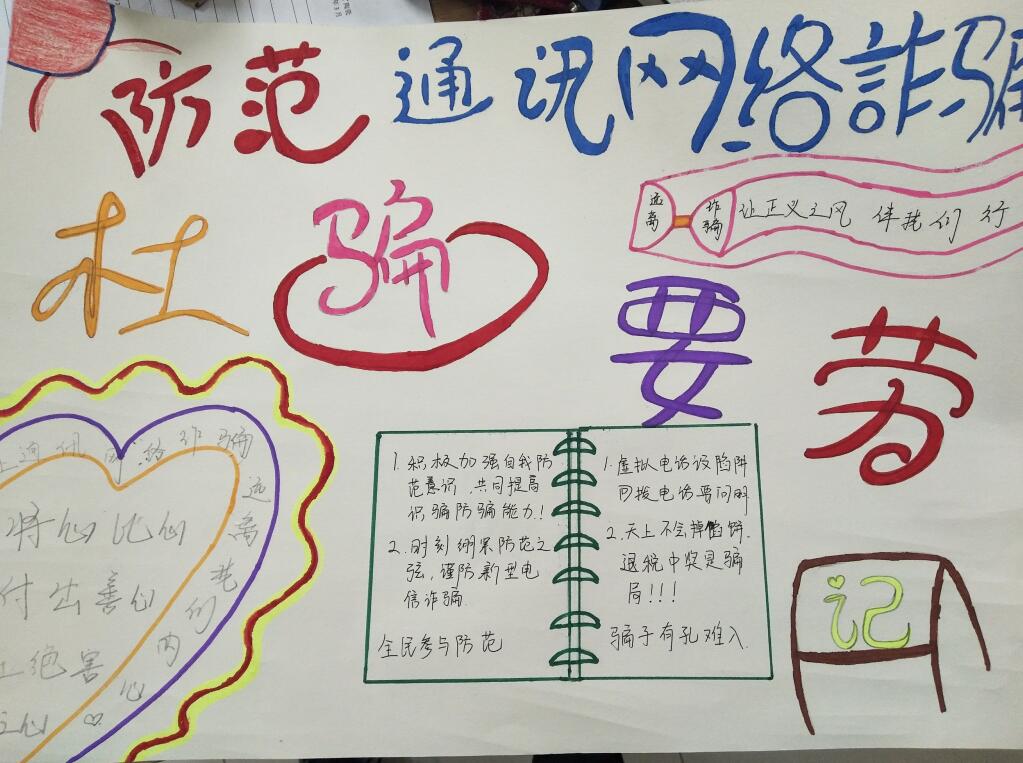 防范通讯网络诈骗
远离
诈骗
让正义之风 伴我们行
杜骗
要劳
记
通讯网络诈骗
远离我们内心
将心比心
付出善心
绝害
之心
1. 积极加强自我防
范意识,共同提高
识骗防骗能力!
2. 时刻绷紧防范之
弦,谨防新型电
信诈骗.
全民参与防范
1. 虚拟电话设陷阱
回拨电话要问明
2. 天上不会掉馅饼.
退税中奖是骗
局!!!
骗子有孔难入.